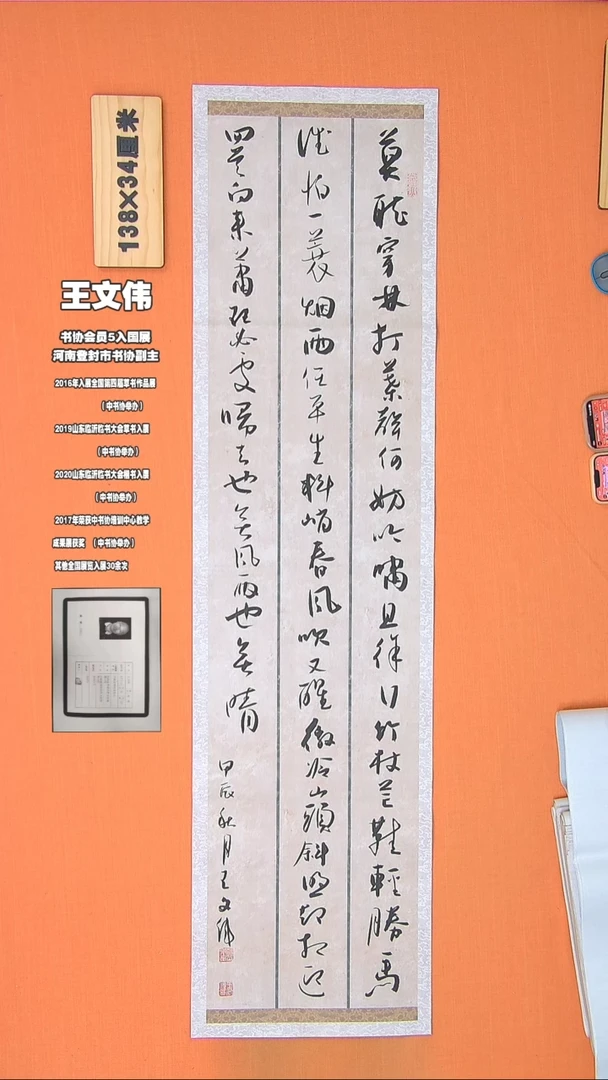 138×34厘米
王文伟
书协会员5入国展
河南登封市书协副主
2016年入展全国第四届草书作品展
（中书协举办）
2019山东临沂临书大会草书入展
（中书协举办）
2020山东临沂临书大会楷书入展
（中书协举办）
2017年荣获中书协培训中心教学
成果展获奖 （中书协举办）
其他全国展览入展30余次
莫聽穿林打葉聲何妨吟嘯且徐行竹杖芒鞋輕勝馬
誰怕一蓑烟雨任平生料峭春風吹又醒微冷山頭斜照却相迎
回首向来蕭瑟處歸去也無風雨也無晴
甲辰秋月王文偉